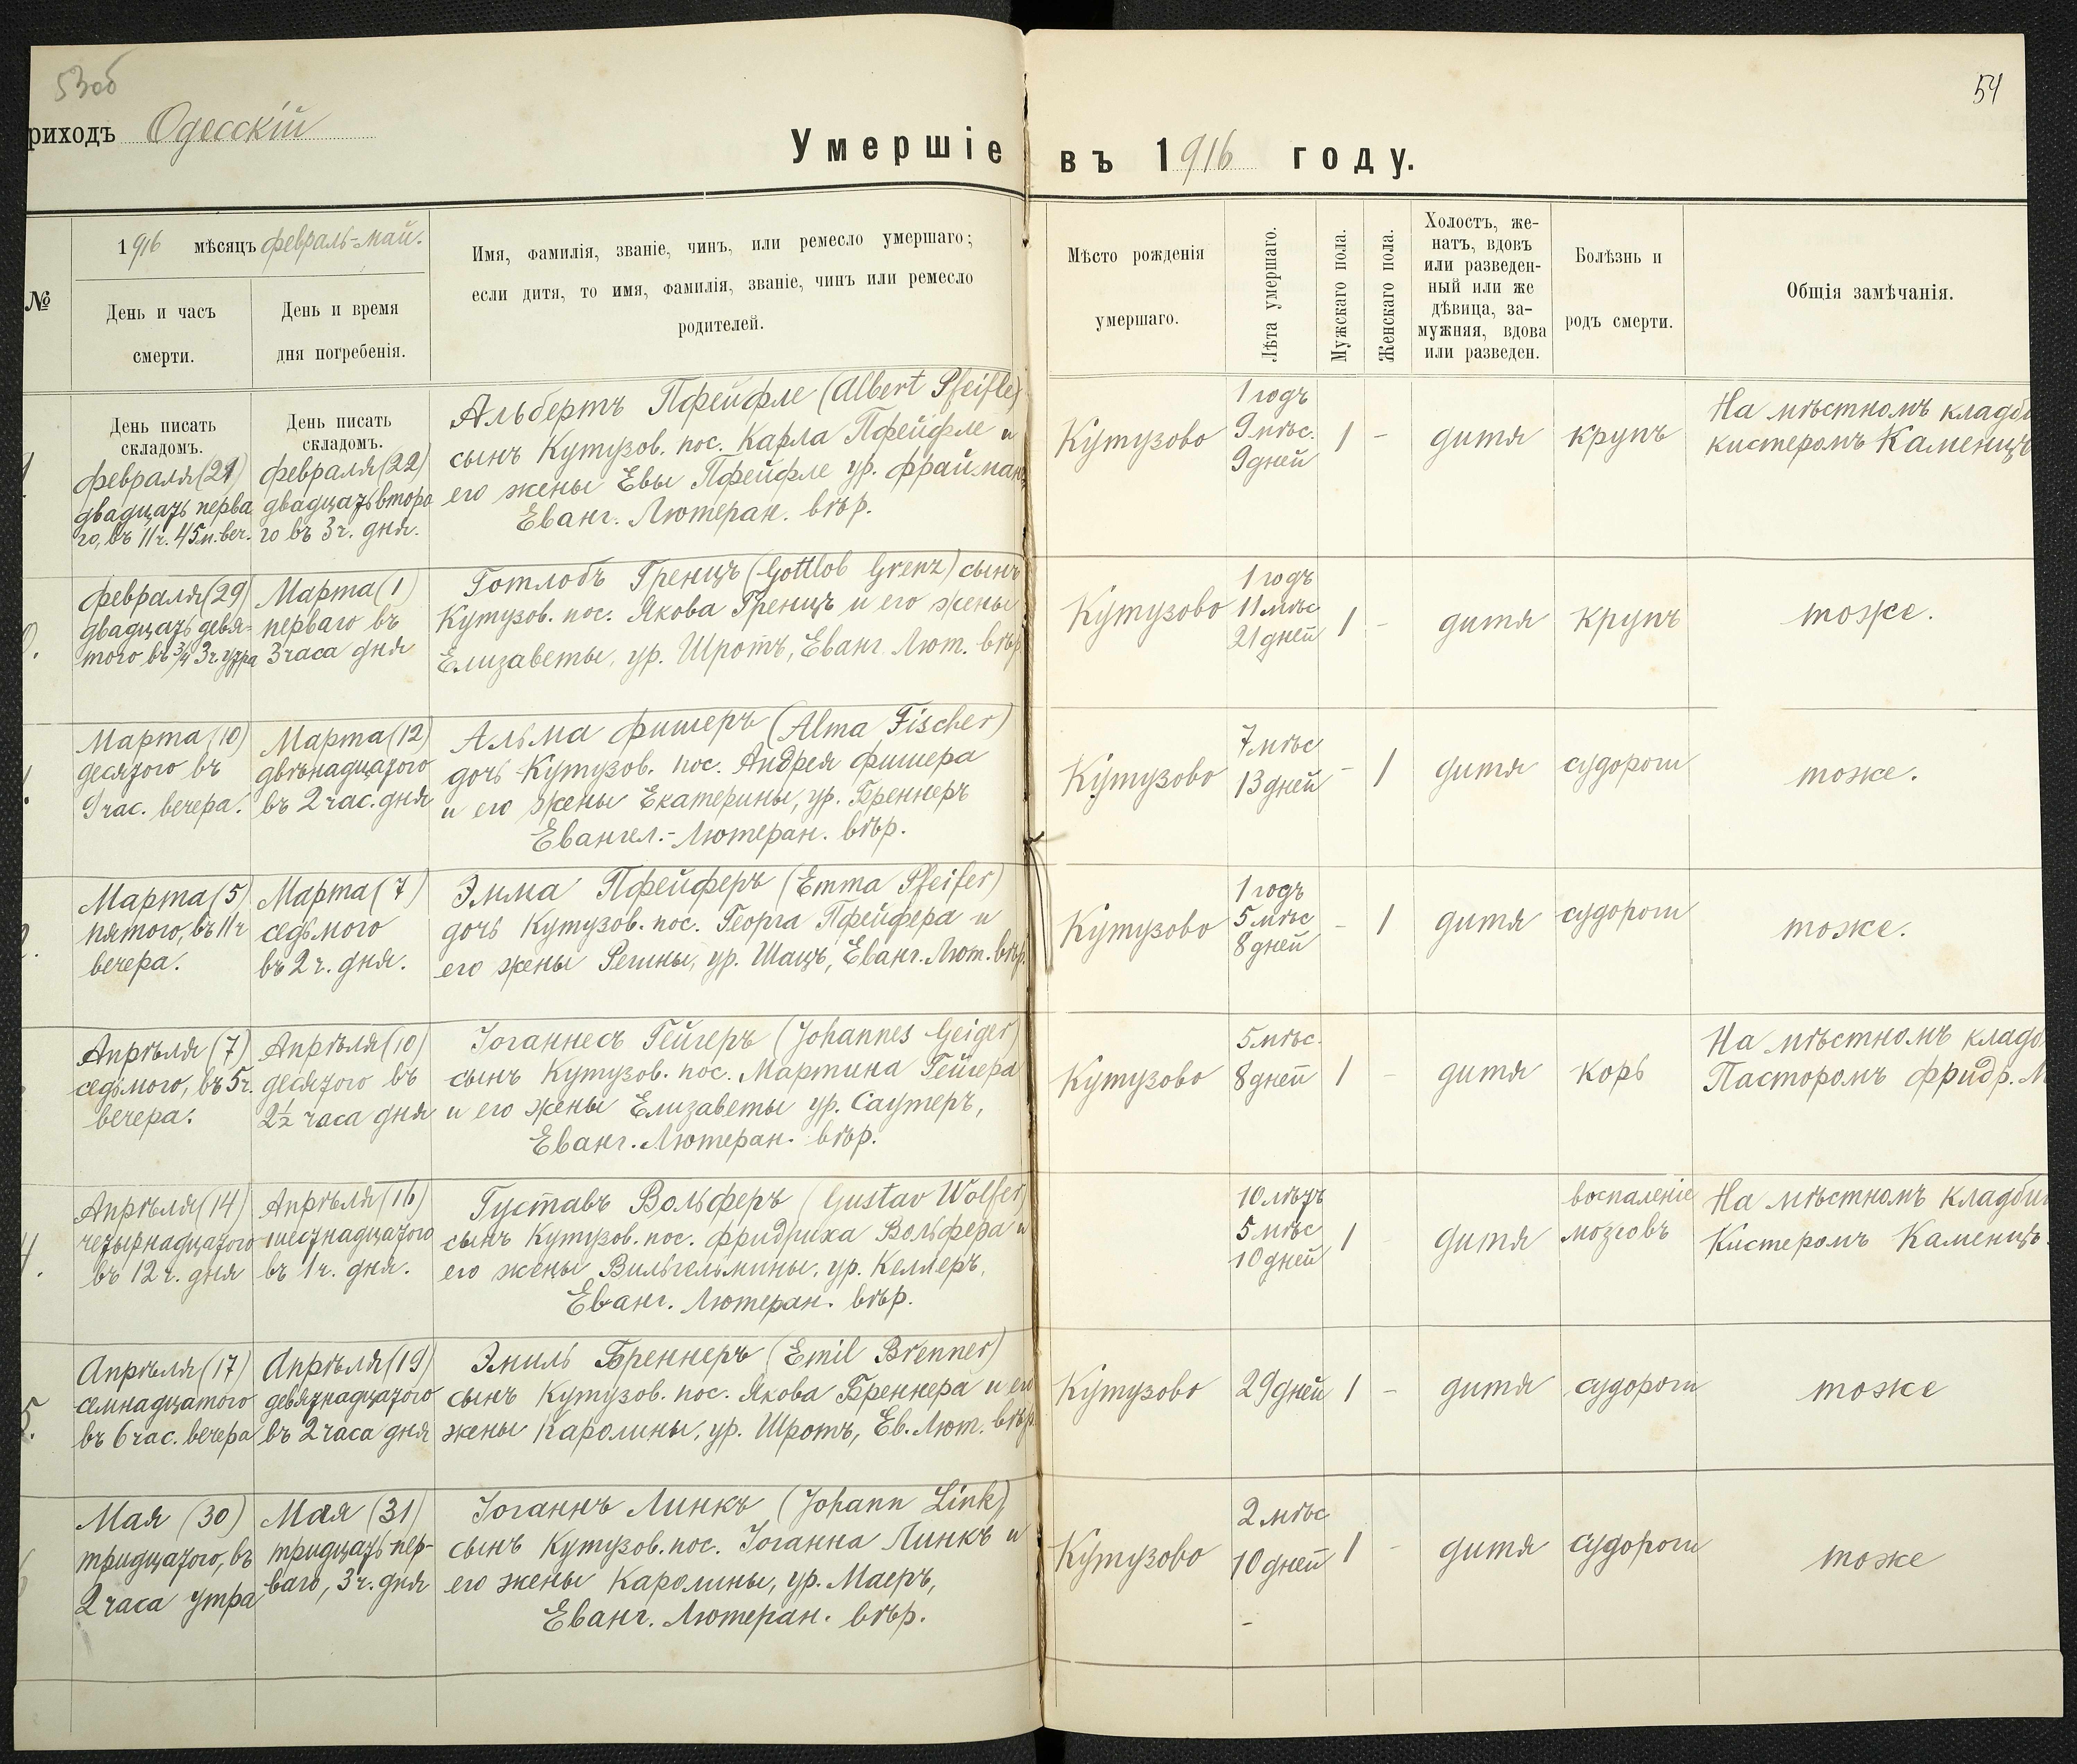 53об
54
риходъ Одесскій
Умершіе въ 1916 году.
№
1916 мѣсяцъ февраль-май.
День и часъ
смерти.
День и время
дня погребенія.
Имя, фамилія, званіе, чинъ, или ремесло умершаго;
если дитя, то имя, фамилія, званіе, чинъ или ремесло
родителей.
Мѣсто рожденія
умершаго.
Лѣта умершаго.
Мужскаго пола.
Женскаго пола.
Холостъ, же-
натъ, вдовъ
или разведен-
ный или же
дѣвица, за-
мужняя, вдова
или разведен.
Болѣзнь и
родъ смерти.
Общія замѣчанія.
День писать
складомъ.
февраля (21)
двадцать перва
го, въ 11ч. 45м. веч.
День писать
складомъ.
февраля (22)
двадцать второ
го въ 3ч. дня.
Альбертъ Пфейфле (Albert Pfeifle)
сынъ Кутузов. пос. Карла Пфейфле и
его жены Евы Пфейфле ур. Фрайман
Еванг. Лютеран. вѣр.
Кутузово
1 годъ
9 мѣс.
9 дней
1
-
дитя
крупъ
На мѣстномъ кладби
кистеромъ Каменцъ
февраля (29)
двадцать девя-
того въ 3/4 3ч. утра
Марта (1)
перваго въ
3 часа дня
Готлобъ Гренцъ (Gottlob Grenz) сынъ
Кутузов. пос. Якова Гренцъ и его жены
Елизаветы, ур. Шротъ, Еванг. Лют. вѣр.
Кутузово
1 годъ
11 мѣс
21 дней
1
-
дитя
крупъ
тоже.
Марта (10)
десятого въ
9 час. вечера.
Марта (12)
двѣнадцатого
въ 2 час. дня
Альма Фишеръ (Alma Fischer)
дочь Кутузов. пос. Андрея Фишера
и его жены Екатерины, ур. Бреннеръ
Евангел.-Лютеран. вѣр.
Кутузово
7 мѣс
13 дней
-
1
дитя
судороги
тоже.
2.
Марта (5)
пятого, въ 11ч
вечера.
Марта (7)
седьмого
въ 2 ч. дня.
Эмма Пфейферъ (Emma Pfeifer)
дочь Кутузов. пос. Георга Пфейфера и
его жены Регины, ур. Шацъ, Еванг. Лют. вѣр.
Кутузово
1 годъ
5 мѣс
8 дней
-
1
дитя
судороги
тоже.
Апрѣля (7)
седьмого, въ 5ч.
вечера.
Апрѣля (10)
десятого въ
2½ часа дня
Іоганнесъ Гейгеръ (Johannes Geiger)
сынъ Кутузов. пос. Мартина Гейгера
и его жены Елизаветы ур. Саутеръ,
Еванг. Лютеран. вѣр.
Кутузово
5 мѣс.
8 дней
1
-
дитя
корь
На мѣстномъ кладб
Пасторомъ Фридр. М
4.
Апрѣля (14)
четырнадцатого
въ 12 ч. дня
Апрѣля (16)
шестнадцатого
въ 1 ч. дня.
Густавъ Вольферъ (Gustav Wolfer)
сынъ Кутузов. пос. Фридриха Вольфера и
его жены Вильгельмины, ур. Келлеръ,
Еванг. Лютеран. вѣр.
10 лѣтъ
5 мѣс
10 дней
1
дитя
воспаленіе
мозговъ
На мѣстномъ кладби
Кистеромъ Каменцъ.
5.
Апрѣля (17)
семнадцатого
въ 6 час. вечера
Апрѣля (19)
девятнадцатого
въ 2 часа дня
Эмиль Бреннеръ (Emil Brenner)
сынъ Кутузов. пос. Якова Бреннера и его
жены Каролины, ур. Шротъ, Ев. Лют. вѣр.
Кутузово
29 дней
1
-
дитя
судороги
тоже
Мая (30)
тридцатого, въ
2 часа утра
Мая (31)
тридцать пер-
ваго, 3 ч. дня
Іоганнъ Линкъ (Johann Link)
сынъ Кутузов. пос. Іоганна Линкъ и
его жены Каролины, ур. Маеръ,
Еванг. Лютеран. вѣр.
Кутузово
2 мѣс
10 дней
-
1
-
дитя
судороги
тоже